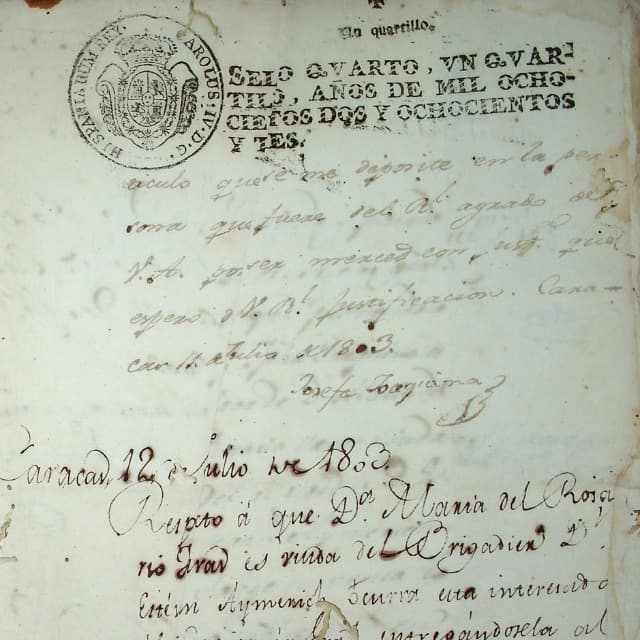 Un quartillo.
HISPANIARUM REX CAROLUS IV D. G.
SELO QVARTO, VN QVAR-
TILO, AÑOS DE MIL OCHO-
CIETOS DOS Y OCHOCIENTOS
Y TES.
que se me deposite en la per
sona que fuere del Rl agrado de
V. A. por ser merced con que
espero de V. Rl Justificacion. Cara-
cas Julio de 1803.
Josefa
Caracas, 12 de Julio de 1803.
Respeto á que Da Maria del Rosa
rio es viuda del Brigadier Dn
Estevn Aymerich
entregándosela al